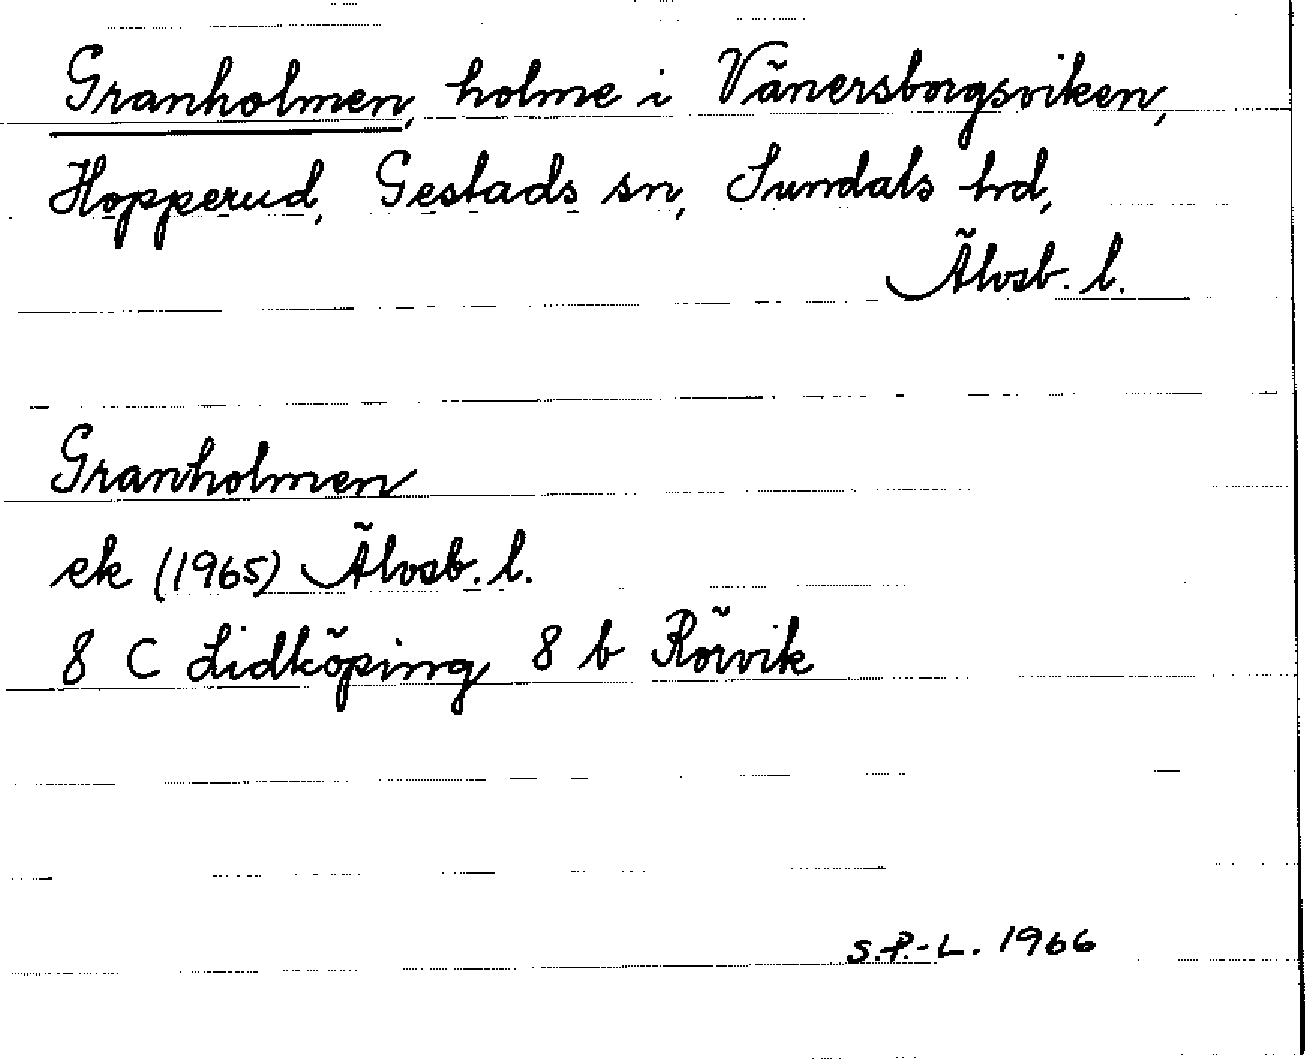 Granholmen, holme i Vänersborgsviken,
Hopperud, Gestads sn, Sundals hd,
Älvsb. l.
Granholmen
ek (1965) Älvsb. l.
8 C Lidköping 8 b Rörvik
S.P.-L. 1966